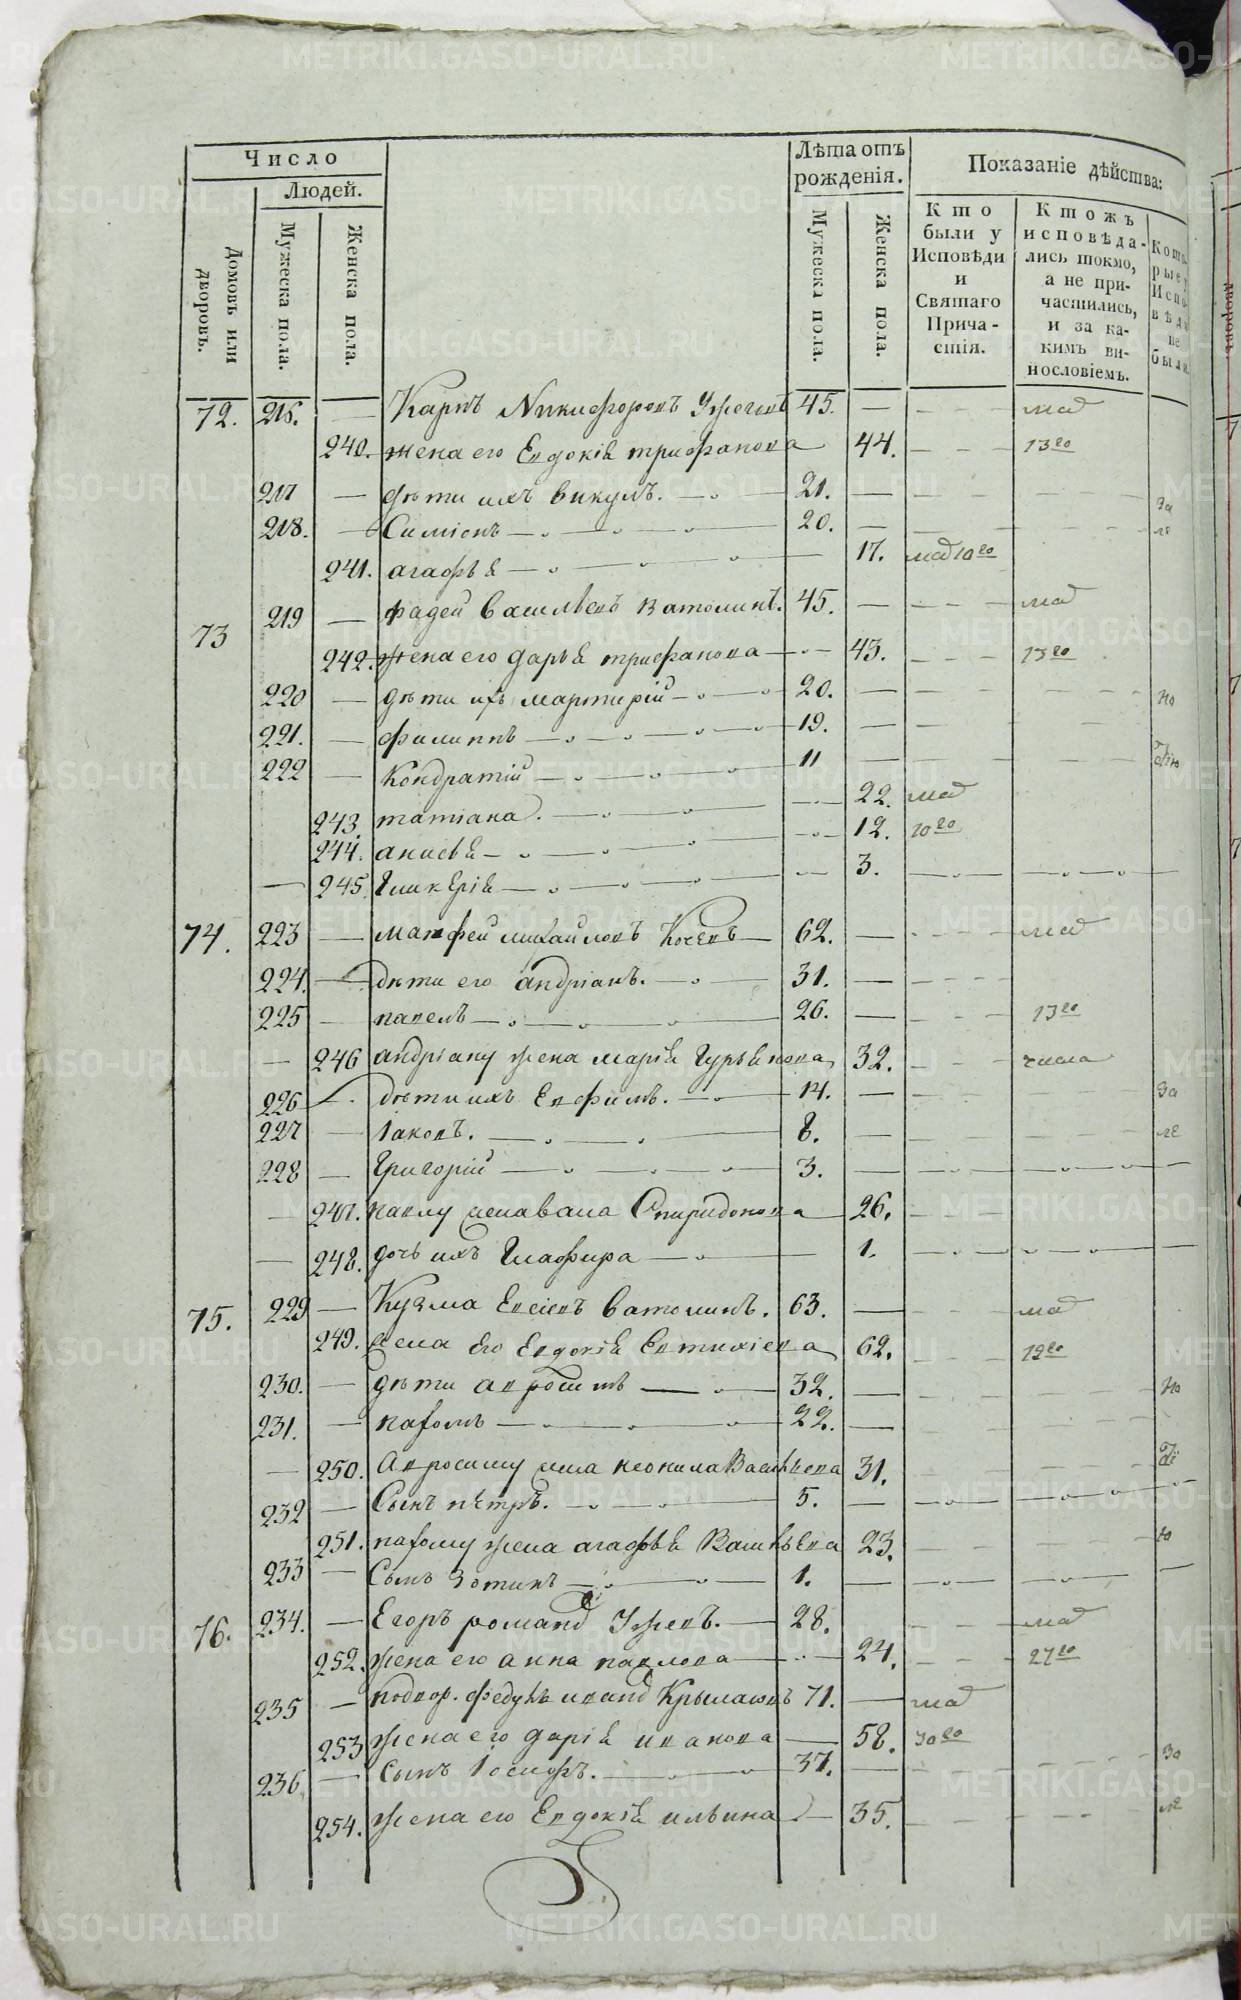 Число
Людей.
Домовъ или дворовъ.
Мужеска пола.
Женска пола.
Лѣта отъ рожденія.
Мужеска пола.
Женска пола.
Показаніе дѣйства:
Кто были у Исповѣди и Святаго Причастія.
Ктожъ исповѣдались токмо, а не причастились, и за какимъ винословіемъ.
Которые у Исповѣди не были.
72. 216. — Карпъ Никифоровъ 45. —
240. жена его Евдокія трифанова 44. — 13го
217 — дѣти ихъ викулъ. 21. —
218. — Симіонъ 20. —
241. агафья 17.
73 219 — фадей васильевъ ватолинъ. 45. —
242. жена его дарья трифанова 43. 13го
220 — дѣти ихъ мартирій 20. —
221. — филиппъ 19. —
222 — Кондратій 11 —
243. татіана. 22.
244. анисья 12.
— 245. Гликерія 3.
74. 223 — матфей михайловъ 62. —
224. — дѣти его андріанъ. 31. —
225 — павелъ 26. — 13го
— 246 андріану жена марія Гурьянова 32. числа
226 — дѣти ихъ Евфимъ. 14. —
227 — Іаковъ. 8. —
228 — Григорій 3. —
— 247. павлу жена васа Спиридонова 26.
— 248. дочь ихъ Глафира 1.
75. 229 — Кузма Евсіевъ ватолинъ. 63. —
249. жена Его Евдокія Евтихіева 62.
230. — дѣти авросимъ 32. —
231. — пахомъ 22. —
— 250. Авросиму жена неонила Васильева 31.
232 — Сынъ пётръ. 5. —
251. пахому жена агафья Васильева 23.
233 — Сынъ Зотикъ 1. —
76. 234. — Егоръ романовъ 28.
252. жена его анна павлова 24. 27го
235 — Ѳедулъ ивановъ 71. —
253 жена его дарія иванова 58. 30го
236 — Сынъ Іосифъ. 37. —
254. жена его Евдокія ильина 35.
METRIKI.GASO-URAL.RU